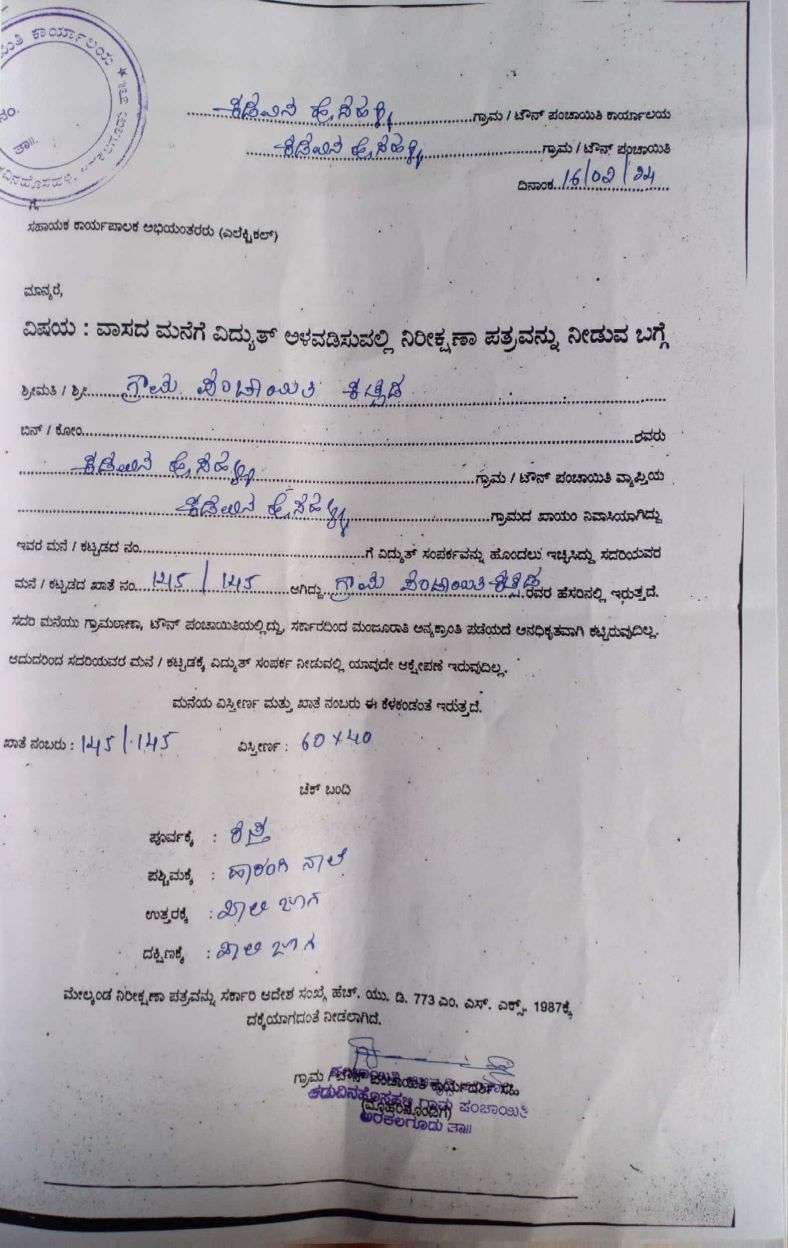 ಕಾರ್ಯಾಲಯ ★
ನಂ.
ತಾ॥
ಕಡುವಿನ ಹೊಸಹಳ್ಳಿ ಗ್ರಾಮ / ಟೌನ್ ಪಂಚಾಯಿತಿ ಕಾರ್ಯಾಲಯ
ಕಡುವಿನ ಹೊಸಹಳ್ಳಿ ಗ್ರಾಮ / ಟೌನ್ ಪಂಚಾಯಿತಿ
ದಿನಾಂಕ 16/02/24
ಗೆ,
ಸಹಾಯಕ ಕಾರ್ಯಪಾಲಕ ಅಭಿಯಂತರರು (ಎಲೆಕ್ಟ್ರಿಕಲ್)
ಮಾನ್ಯರೆ,
ವಿಷಯ : ವಾಸದ ಮನೆಗೆ ವಿದ್ಯುತ್ ಅಳವಡಿಸುವಲ್ಲಿ ನಿರೀಕ್ಷಣಾ ಪತ್ರವನ್ನು ನೀಡುವ ಬಗ್ಗೆ
ಶ್ರೀಮತಿ / ಶ್ರೀ ಗ್ರಾಮ ಪಂಚಾಯಿತಿ ಕಟ್ಟಡ
ಬಿನ್ / ಕೋಂ ರವರು
ಕಡುವಿನ ಹೊಸಹಳ್ಳಿ ಗ್ರಾಮ / ಟೌನ್ ಪಂಚಾಯಿತಿ ವ್ಯಾಪ್ತಿಯ
ಕಡುವಿನ ಹೊಸಹಳ್ಳಿ ಗ್ರಾಮದ ಖಾಯಂ ನಿವಾಸಿಯಾಗಿದ್ದು
ಇವರ ಮನೆ / ಕಟ್ಟಡದ ನಂ. ಗೆ ವಿದ್ಯುತ್ ಸಂಪರ್ಕವನ್ನು ಹೊಂದಲು ಇಚ್ಛಿಸಿದ್ದು ಸದರಿಯವರ
ಮನೆ / ಕಟ್ಟಡದ ಖಾತೆ ನಂ. 145 / 145 ಆಗಿದ್ದು ಗ್ರಾಮ ಪಂಚಾಯಿತಿ ಕಟ್ಟಡ ರವರ ಹೆಸರಿನಲ್ಲಿ ಇರುತ್ತದೆ.
ಸದರಿ ಮನೆಯು ಗ್ರಾಮಠಾಣಾ, ಟೌನ್ ಪಂಚಾಯಿತಿಯಲ್ಲಿದ್ದು, ಸರ್ಕಾರದಿಂದ ಮಂಜೂರಾತಿ ಅನ್ಯಕ್ರಾಂತಿ ಪಡೆಯದೆ ಅನಧಿಕೃತವಾಗಿ ಕಟ್ಟಿರುವುದಿಲ್ಲ.
ಆದುದರಿಂದ ಸದರಿಯವರ ಮನೆ / ಕಟ್ಟಡಕ್ಕೆ ವಿದ್ಯುತ್ ಸಂಪರ್ಕ ನೀಡುವಲ್ಲಿ ಯಾವುದೇ ಆಕ್ಷೇಪಣೆ ಇರುವುದಿಲ್ಲ.
ಮನೆಯ ವಿಸ್ತೀರ್ಣ ಮತ್ತು ಖಾತೆ ನಂಬರು ಈ ಕೆಳಕಂಡಂತೆ ಇರುತ್ತದೆ.
ಖಾತೆ ನಂಬರು : 145/145 ವಿಸ್ತೀರ್ಣ : 60×40
ಚೆಕ್ ಬಂದಿ
ಪೂರ್ವಕ್ಕೆ : ರಸ್ತೆ
ಪಶ್ಚಿಮಕ್ಕೆ : ಹಾರಂಗಿ ನಾಲೆ
ಉತ್ತರಕ್ಕೆ : ಖಾಲಿ ಜಾಗ
ದಕ್ಷಿಣಕ್ಕೆ : ಖಾಲಿ ಜಾಗ
ಮೇಲ್ಕಂಡ ನಿರೀಕ್ಷಣಾ ಪತ್ರವನ್ನು ಸರ್ಕಾರಿ ಆದೇಶ ಸಂಖ್ಯೆ ಹೆಚ್. ಯು. ಡಿ. 773 ಎಂ. ಎಸ್. ಎಕ್ಸ್. 1987ಕ್ಕೆ
ದಕ್ಕೆಯಾಗದಂತೆ ನೀಡಲಾಗಿದೆ.
ಗ್ರಾಮ / ಟೌನ್ ಪಂಚಾಯಿತಿ ಕಾರ್ಯದರ್ಶಿ ಸಹಿ
(ಮೊಹರಿನೊಂದಿಗೆ)
ಕಡುವಿನಹೊಸಹಳ್ಳಿ ಗ್ರಾಮ ಪಂಚಾಯಿತಿ
ಅರಕಲಗೂಡು ತಾ॥